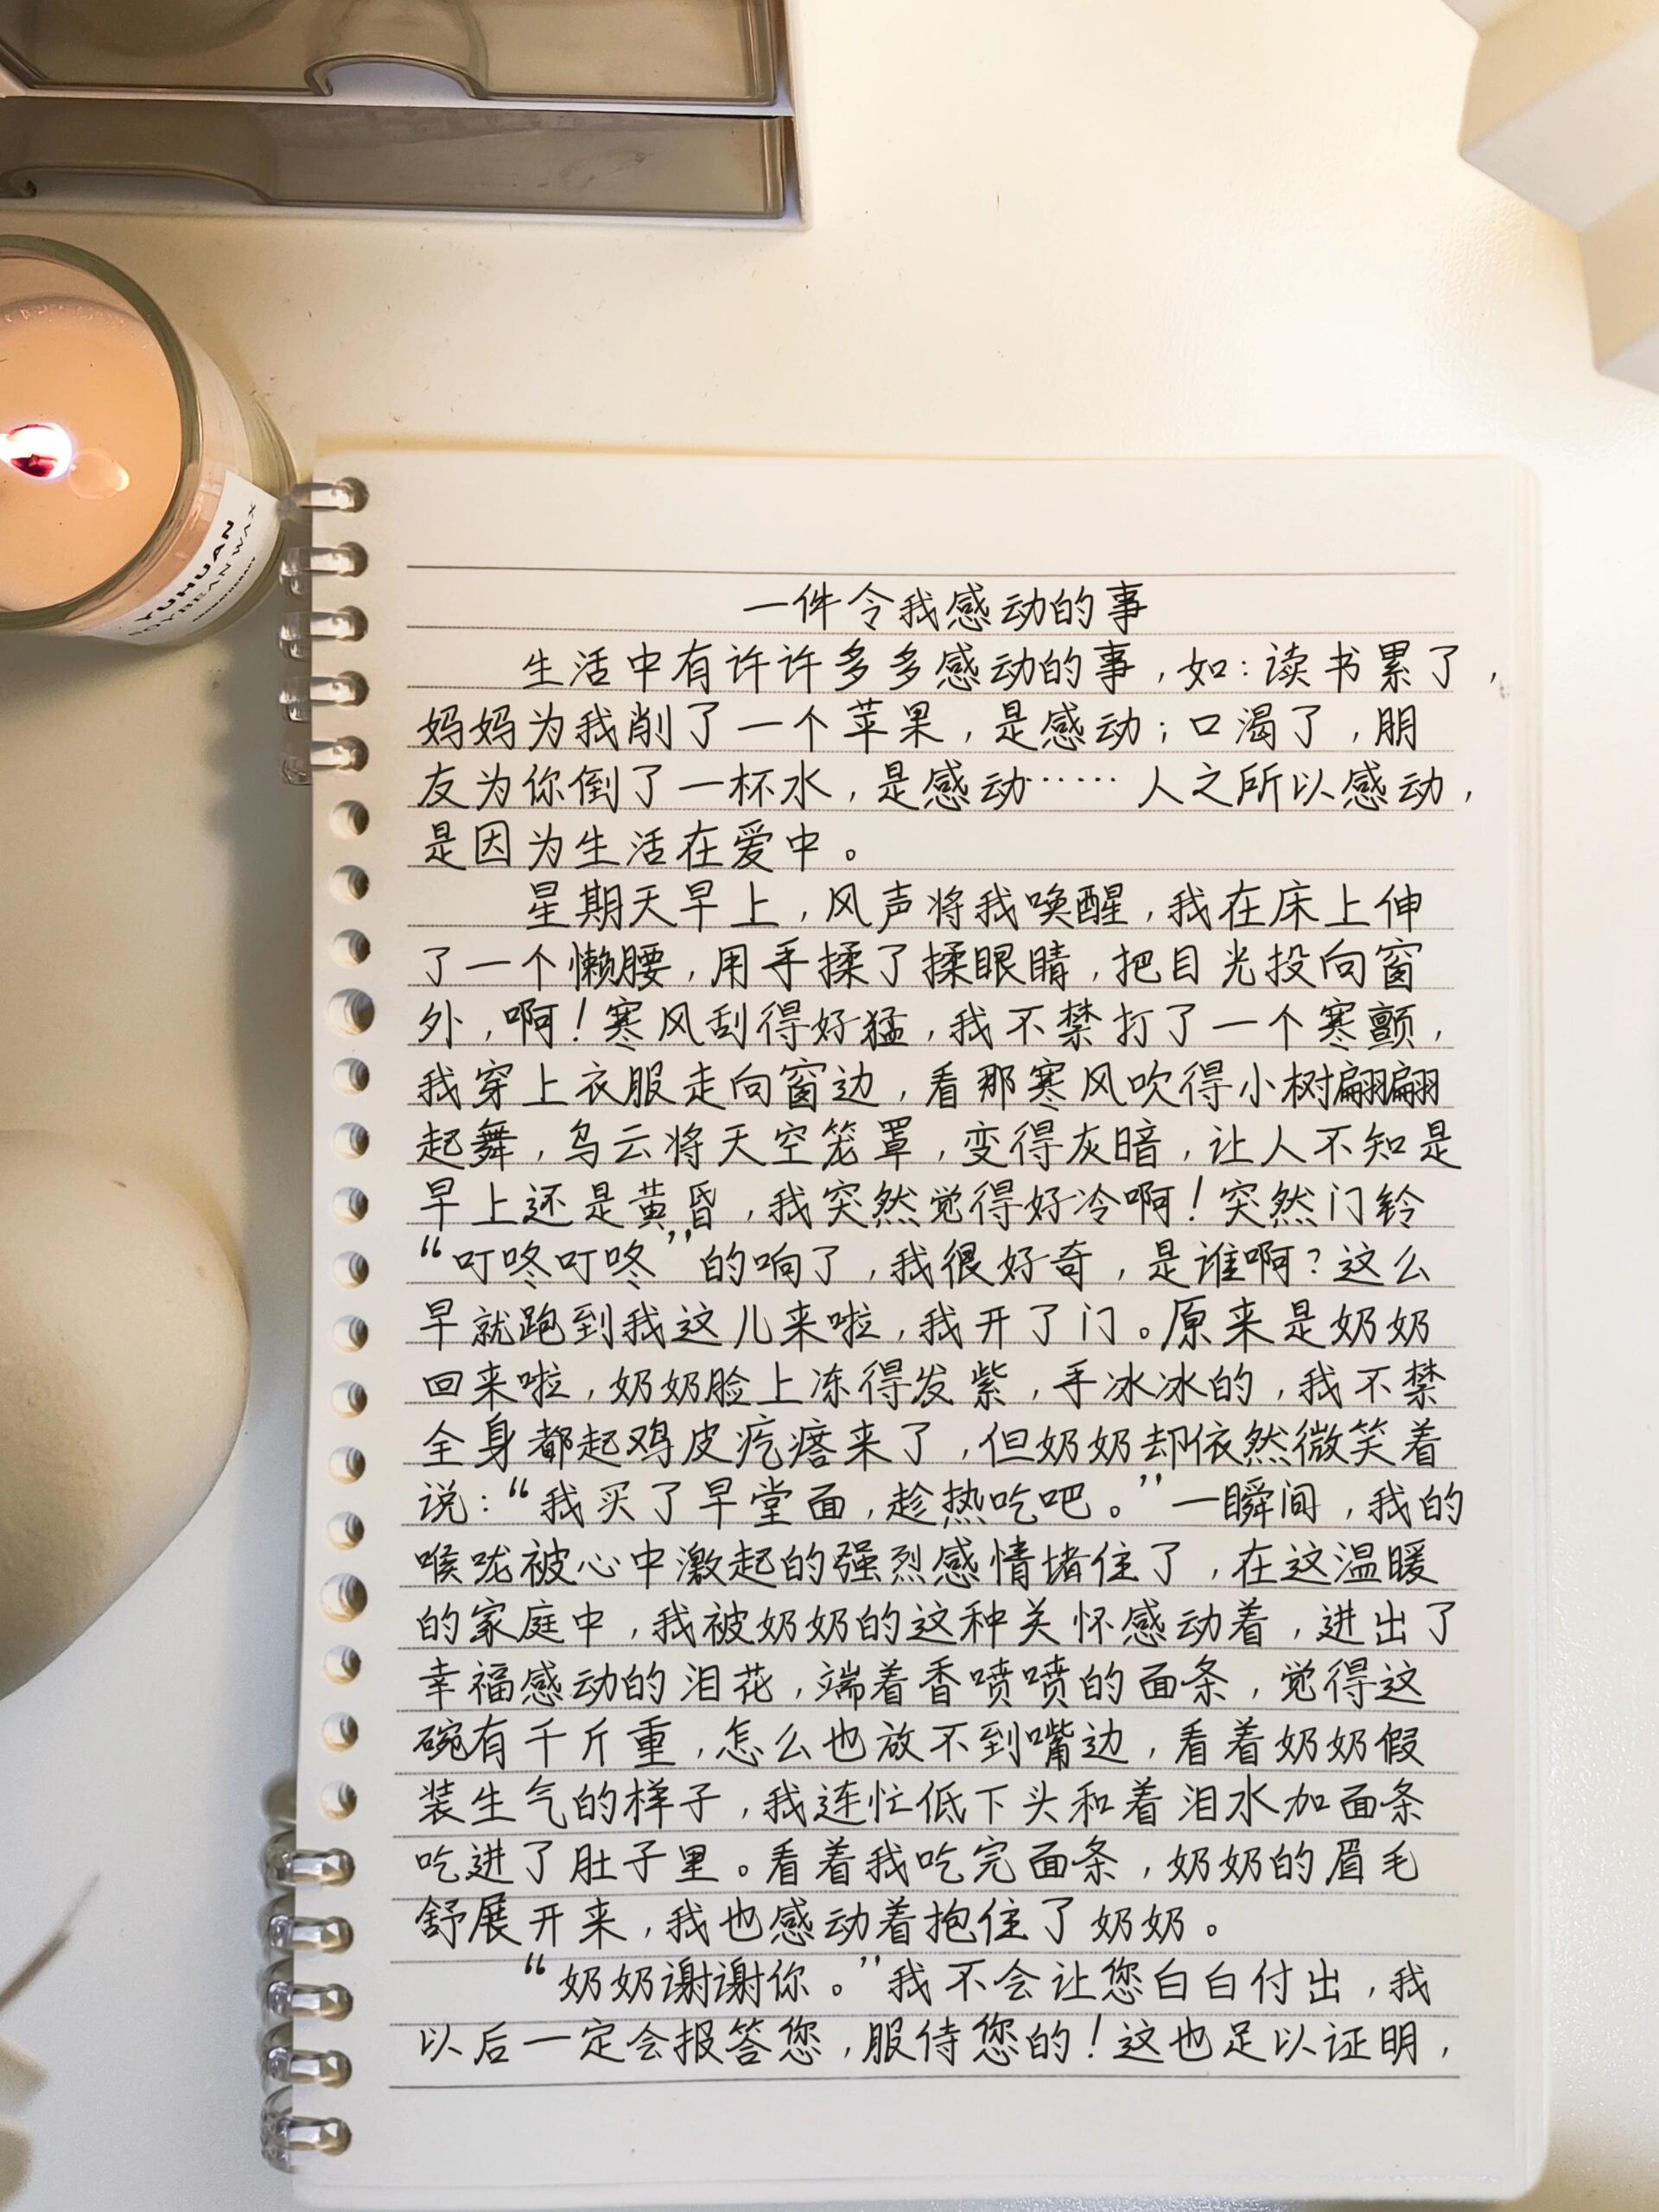 YUHUAN
SOYBEAN WAX
AROMATHERAPY
一件令我感动的事
生活中有许许多多感动的事，如：读书累了，
妈妈为我削了一个苹果，是感动；口渴了，朋
友为你倒了一杯水，是感动……人之所以感动，
是因为生活在爱中。
星期天早上，风声将我唤醒，我在床上伸
了一个懒腰，用手揉了揉眼睛，把目光投向窗
外，啊！寒风刮得好猛，我不禁打了一个寒颤，
我穿上衣服走向窗边，看那寒风吹得小树翩翩
起舞，乌云将天空笼罩，变得灰暗，让人不知是
早上还是黄昏，我突然觉得好冷啊！突然门铃
“叮咚叮咚”的响了，我很好奇，是谁啊？这么
早就跑到我这儿来啦，我开了门。原来是奶奶
回来啦，奶奶脸上冻得发紫，手冰冰的，我不禁
全身都起鸡皮疙瘩来了，但奶奶却依然微笑着
说：“我买了早堂面，趁热吃吧。”一瞬间，我的
喉咙被心中激起的强烈感情堵住了，在这温暖
的家庭中，我被奶奶的这种关怀感动着，进出了
幸福感动的泪花，端着香喷喷的面条，觉得这
碗有千斤重，怎么也放不到嘴边，看着奶奶假
装生气的样子，我连忙低下头和着泪水加面条
吃进了肚子里。看着我吃完面条，奶奶的眉毛
舒展开来，我也感动着抱住了奶奶。
“奶奶谢谢你。”我不会让您白白付出，我
以后一定会报答您，服侍您的！这也足以证明，